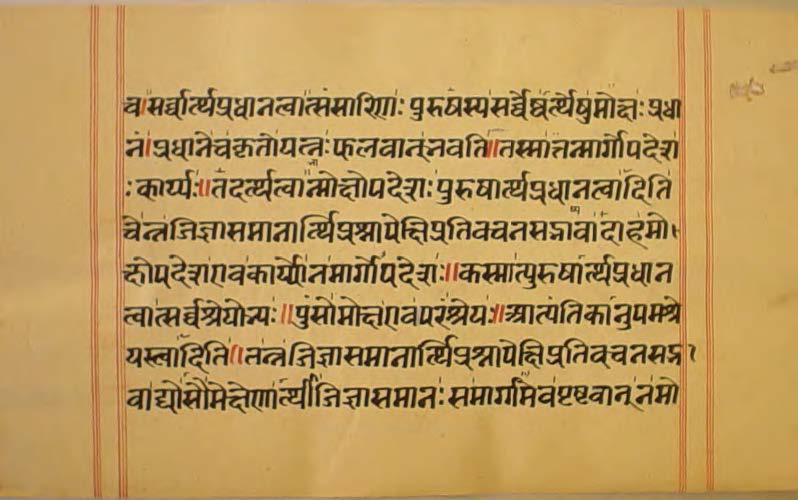 वा।सर्व्वार्त्थप्रधानत्वात्संसारिणः पुरुषस्यसर्व्वेष्वर्त्थेषुमोक्षः प्रधा
नं।प्रधानेचकृतोयत्नः फलवान्नवति॥तस्मात्तन्मार्गोपदेशः
ः कार्य्यः॥तदर्त्थत्वान्मोक्षोपदेशः पुरुषार्त्थप्रधानत्वादिति
चेन्नजिज्ञासमानार्त्थिप्रश्नापेक्षिप्रतिवचनसद्भावादाहमो
क्षोपदेशएवकार्य्योनमार्गोपदेशः॥कस्मात्पुरुषार्त्थप्रधान
त्वात्सर्व्वश्रेयोभ्यः॥पुंसोमोक्षएवपरंश्रेयः॥आत्यंतिकानुपमश्रे
यस्त्वादिति॥तन्नजिज्ञासमानार्त्थिप्रश्नापेक्षिप्रतिवचनसद्भा
वाद्योसौमोक्षेणार्त्थीजिज्ञासमानः समार्गमेवपृष्टवान्नमो